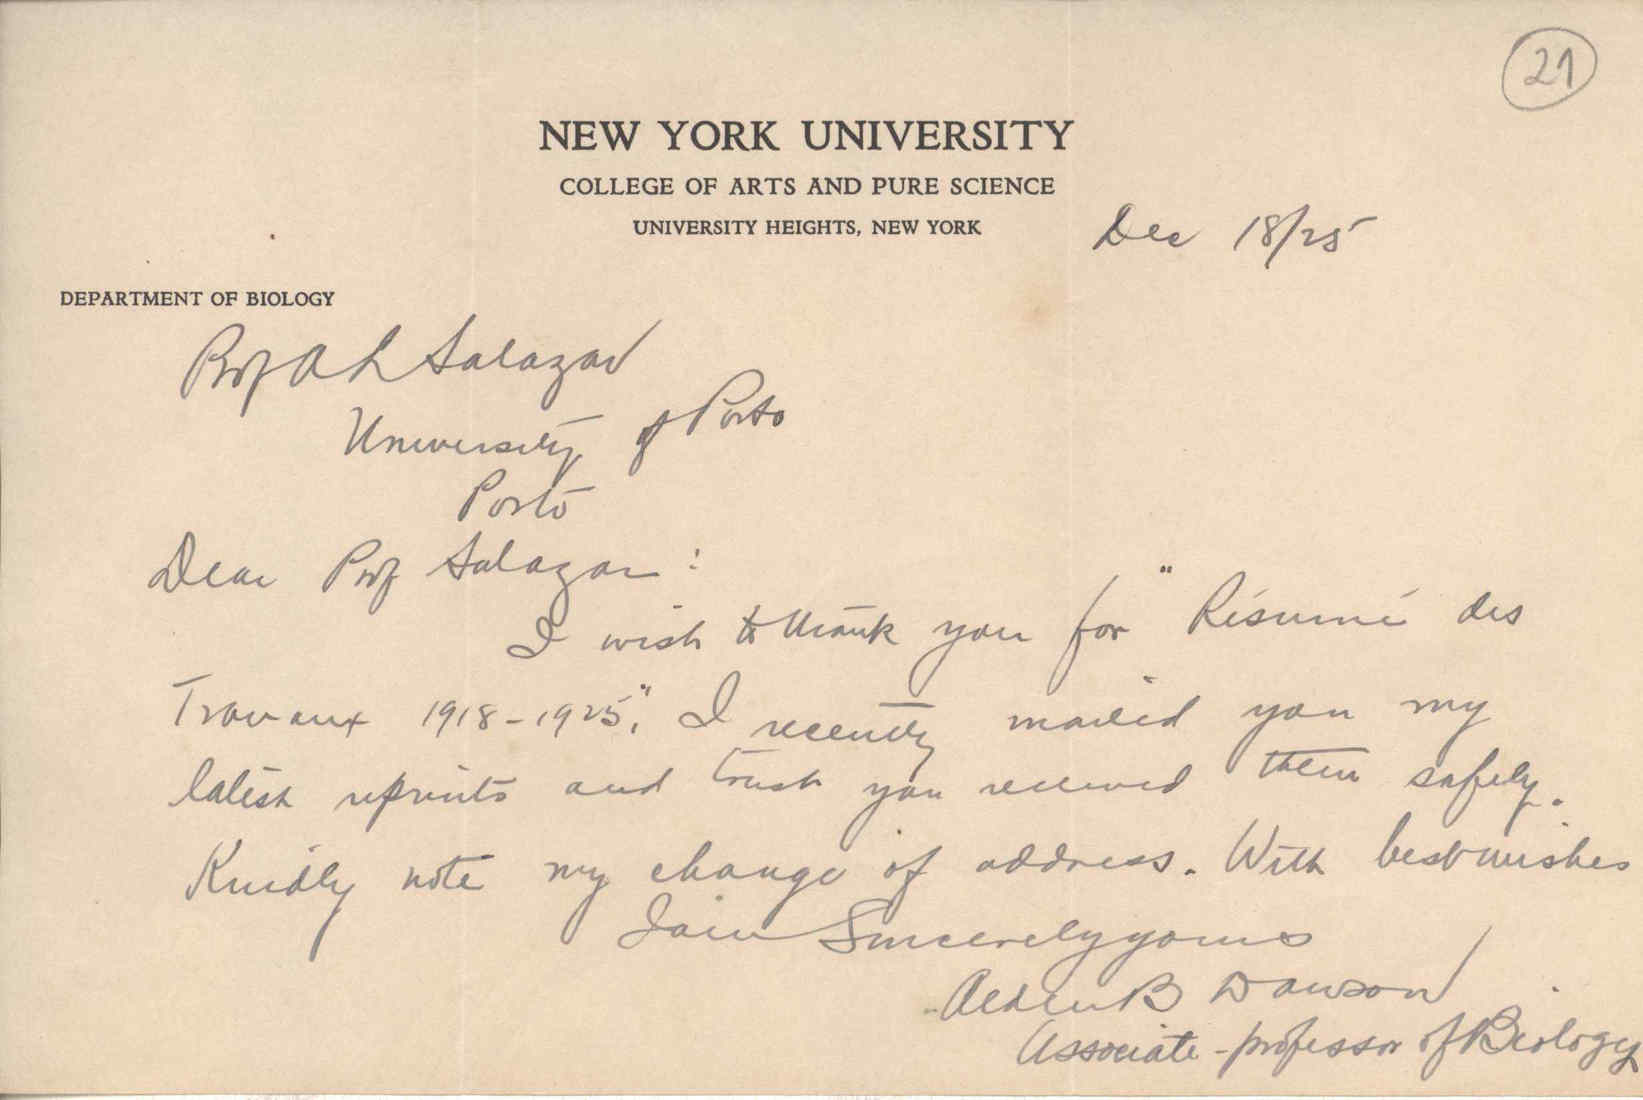 21
NEW YORK UNIVERSITY
COLLEGE OF ARTS AND PURE SCIENCE
UNIVERSITY HEIGHTS, NEW YORK
Dec 18/25
DEPARTMENT OF BIOLOGY
Prof A L Salazar
University of Porto
Porto
Dear Prof Salazar:
I wish to thank you for "Résumé des
Travaux 1918-1925". I recently mailed you my
latest reprints and trust you received them safely.
Kindly note my change of address. With best wishes
I am Sincerely yours
Alden B Dawson
Associate-professor of Biology